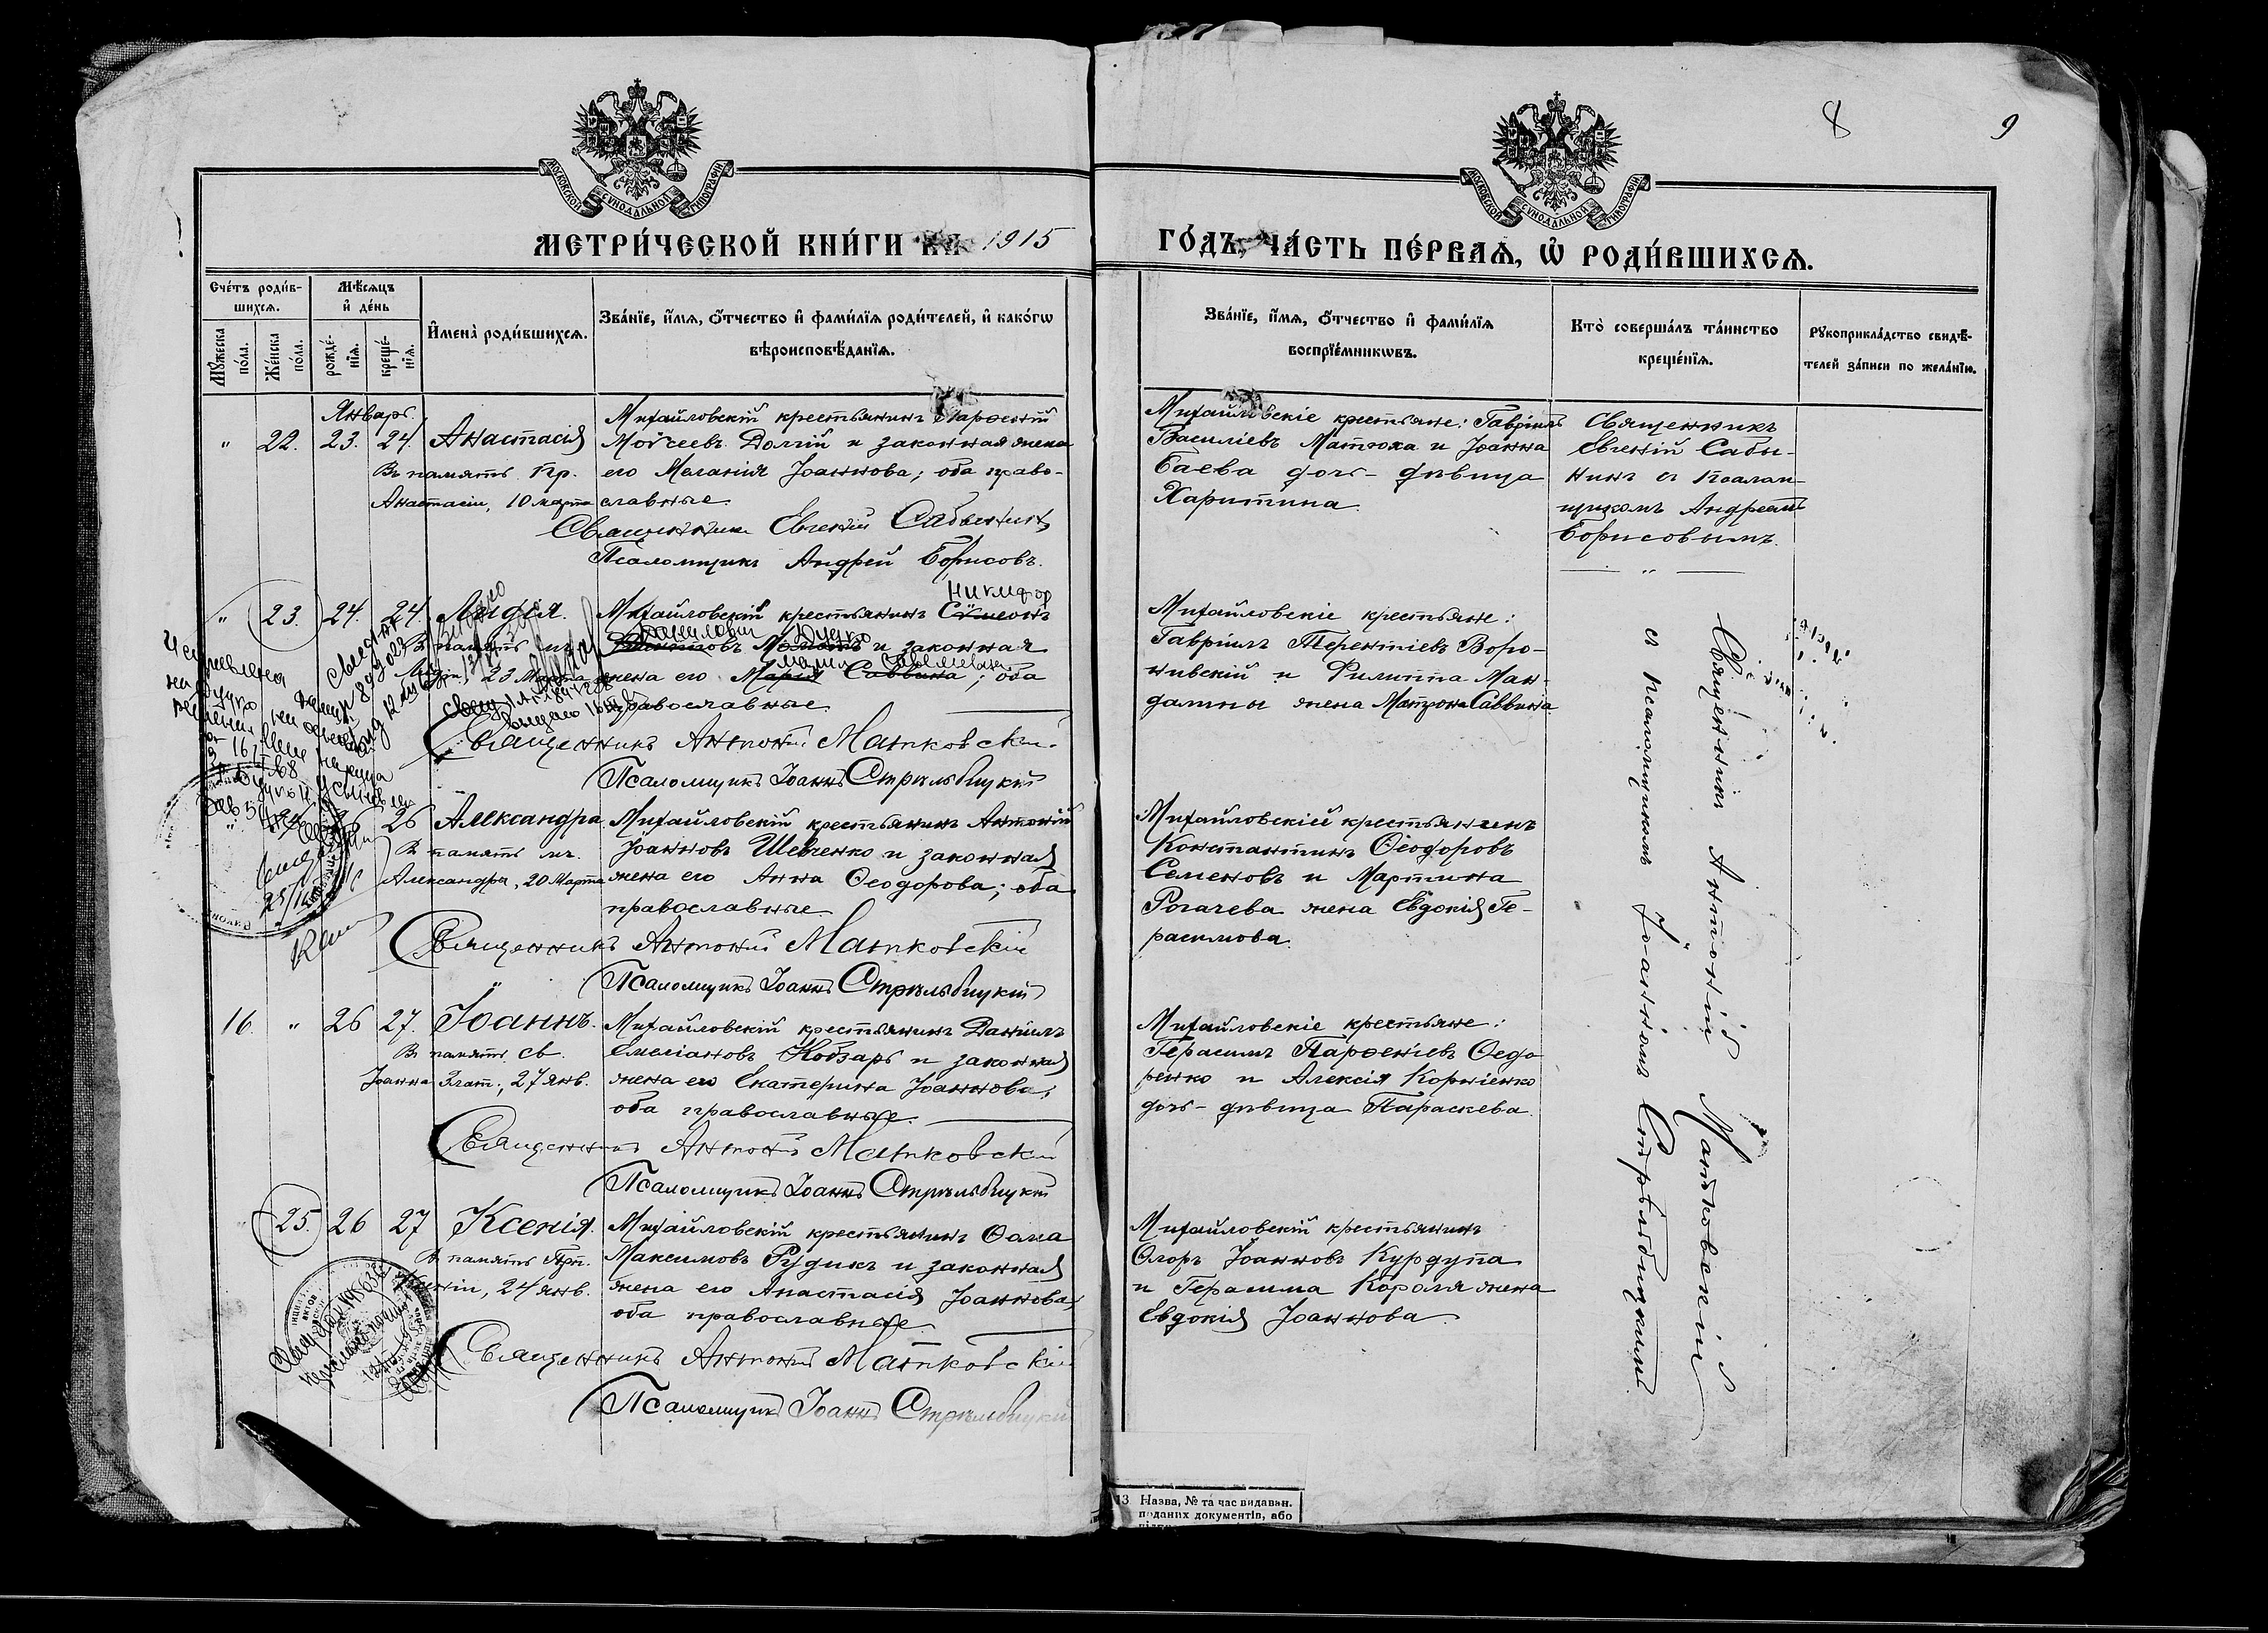 8
9
МОСКОВСКОЙ СѴНОДАЛЬНОЙ ТИПОГРАФІИ
МОСКОВСКОЙ СѴНОДАЛЬНОЙ ТИПОГРАФІИ
МЕТРИ́ЧЕСКОЙ КНИ́ГИ НА 1915
ГО́ДЪ, ЧА́СТЬ ПЕ́РВАѦ, Ѡ҆ РОДИ́ВШИХСѦ.
Сче́тъ роди́в-
шихсѧ.
Мꙋ́жеска по́ла.
Же́нска по́ла.
Мѣ́сѧцъ
и҆ де́нь
рожде́-
нїѧ.
креще́-
нїѧ.
И҆мена̀ роди́вшихсѧ.
Зва́нїе, и҆́мѧ, ѻ҆́тчество и҆ фами́лїѧ роди́телей, и҆ како́гѡ
вѣроисповѣ́данїѧ.
Зва́нїе, и҆́мѧ, ѻ҆́тчество и҆ фами́лїѧ
воспрїе́мникѡвъ.
Кто̀ соверша́лъ та́инство
креще́нїѧ.
Рꙋкоприкла́дство свидѣ́-
телей за́писи по жела́нїю.
Январь.
" 22. 23. 24. Анастасія
Въ память Пр.
Анастасіи, 10 марта
Михайловскій крестьянинъ Парѳеній
Моѵсеевъ Долгій и законная жена
его Меланія Іоаннова; оба право-
славные.
Священникъ Евгеній Сабынинъ
Псаломщикъ Андрей Борисовъ.
Михайловскіе крестьяне: Гавріилъ
Василіевъ Матюха и Іоанна
Баева дочь - дѣвица
Харитина.
Священникъ
Евгеній Сабы-
нинъ съ псалом-
щикомъ Андреемъ
Борисовымъ.
"
" 23. 24. 24. Лидія.
В память мъ.
23 Марта
Никифор
Михайловскій крестьянинъ Сѵмеонъ
Данилович Дудко
и законная
Мария Савельевна
жена его Марія Саввина; оба
православные.
Священникъ Антоній Матковскій.
Псаломщикъ Іоаннъ Стрѣльбицкій
Михайловскіе крестьяне:
Гавріилъ Терентіевъ Воро-
нивскій и Филиппа Ман-
далины жена Матрона Саввина.
Священникъ Антоній Матковскій
съ псаломщикомъ Іоанномъ Стрѣльбицкимъ.
26 Александра.
В память мъ.
Александры, 20 Марта
Михайловскій крестьянинъ Антоній
Іоанновъ Шевченко и законная
жена его Анна Ѳеодорова; оба
православные.
Священникъ Антоній Матковскій
Псаломщикъ Іоаннъ Стрѣльбицкій
Михайловскій крестьянинъ
Константинъ Ѳеодоровъ
Семеновъ и Мартина
Рогачева жена Евдокія Ге-
расимова.
16. " 26 27. Іоаннъ.
В память св.
Іоанна Злат., 27 янв.
Михайловскій крестьянинъ Даніилъ
Емеліановъ Кобзарь и законная
жена его Екатерина Іоаннова;
оба православные.
Священникъ Антоній Матковскій
Псаломщикъ Іоаннъ Стрѣльбицкій
Михайловскіе крестьяне:
Герасимъ Парѳеніевъ Ѳедо-
ренко и Алексія Корніенко
дочь - дѣвица Параскева.
25. 26 27 Ксенія.
В память Прп.
Ксеніи, 24 янв.
Михайловскій крестьянинъ Ѳома
Максимовъ Рудикъ и законная
жена его Анастасія Іоаннова,
оба православные.
Священникъ Антоній Матковскій
Псаломщикъ Іоаннъ Стрѣльбицкій
Михайловскій крестьянинъ
Флоръ Іоанновъ Курдупа
и Герасима Короля жена
Евдокія Іоаннова.
13. Назва, № та час видаван.
поданих документів, або